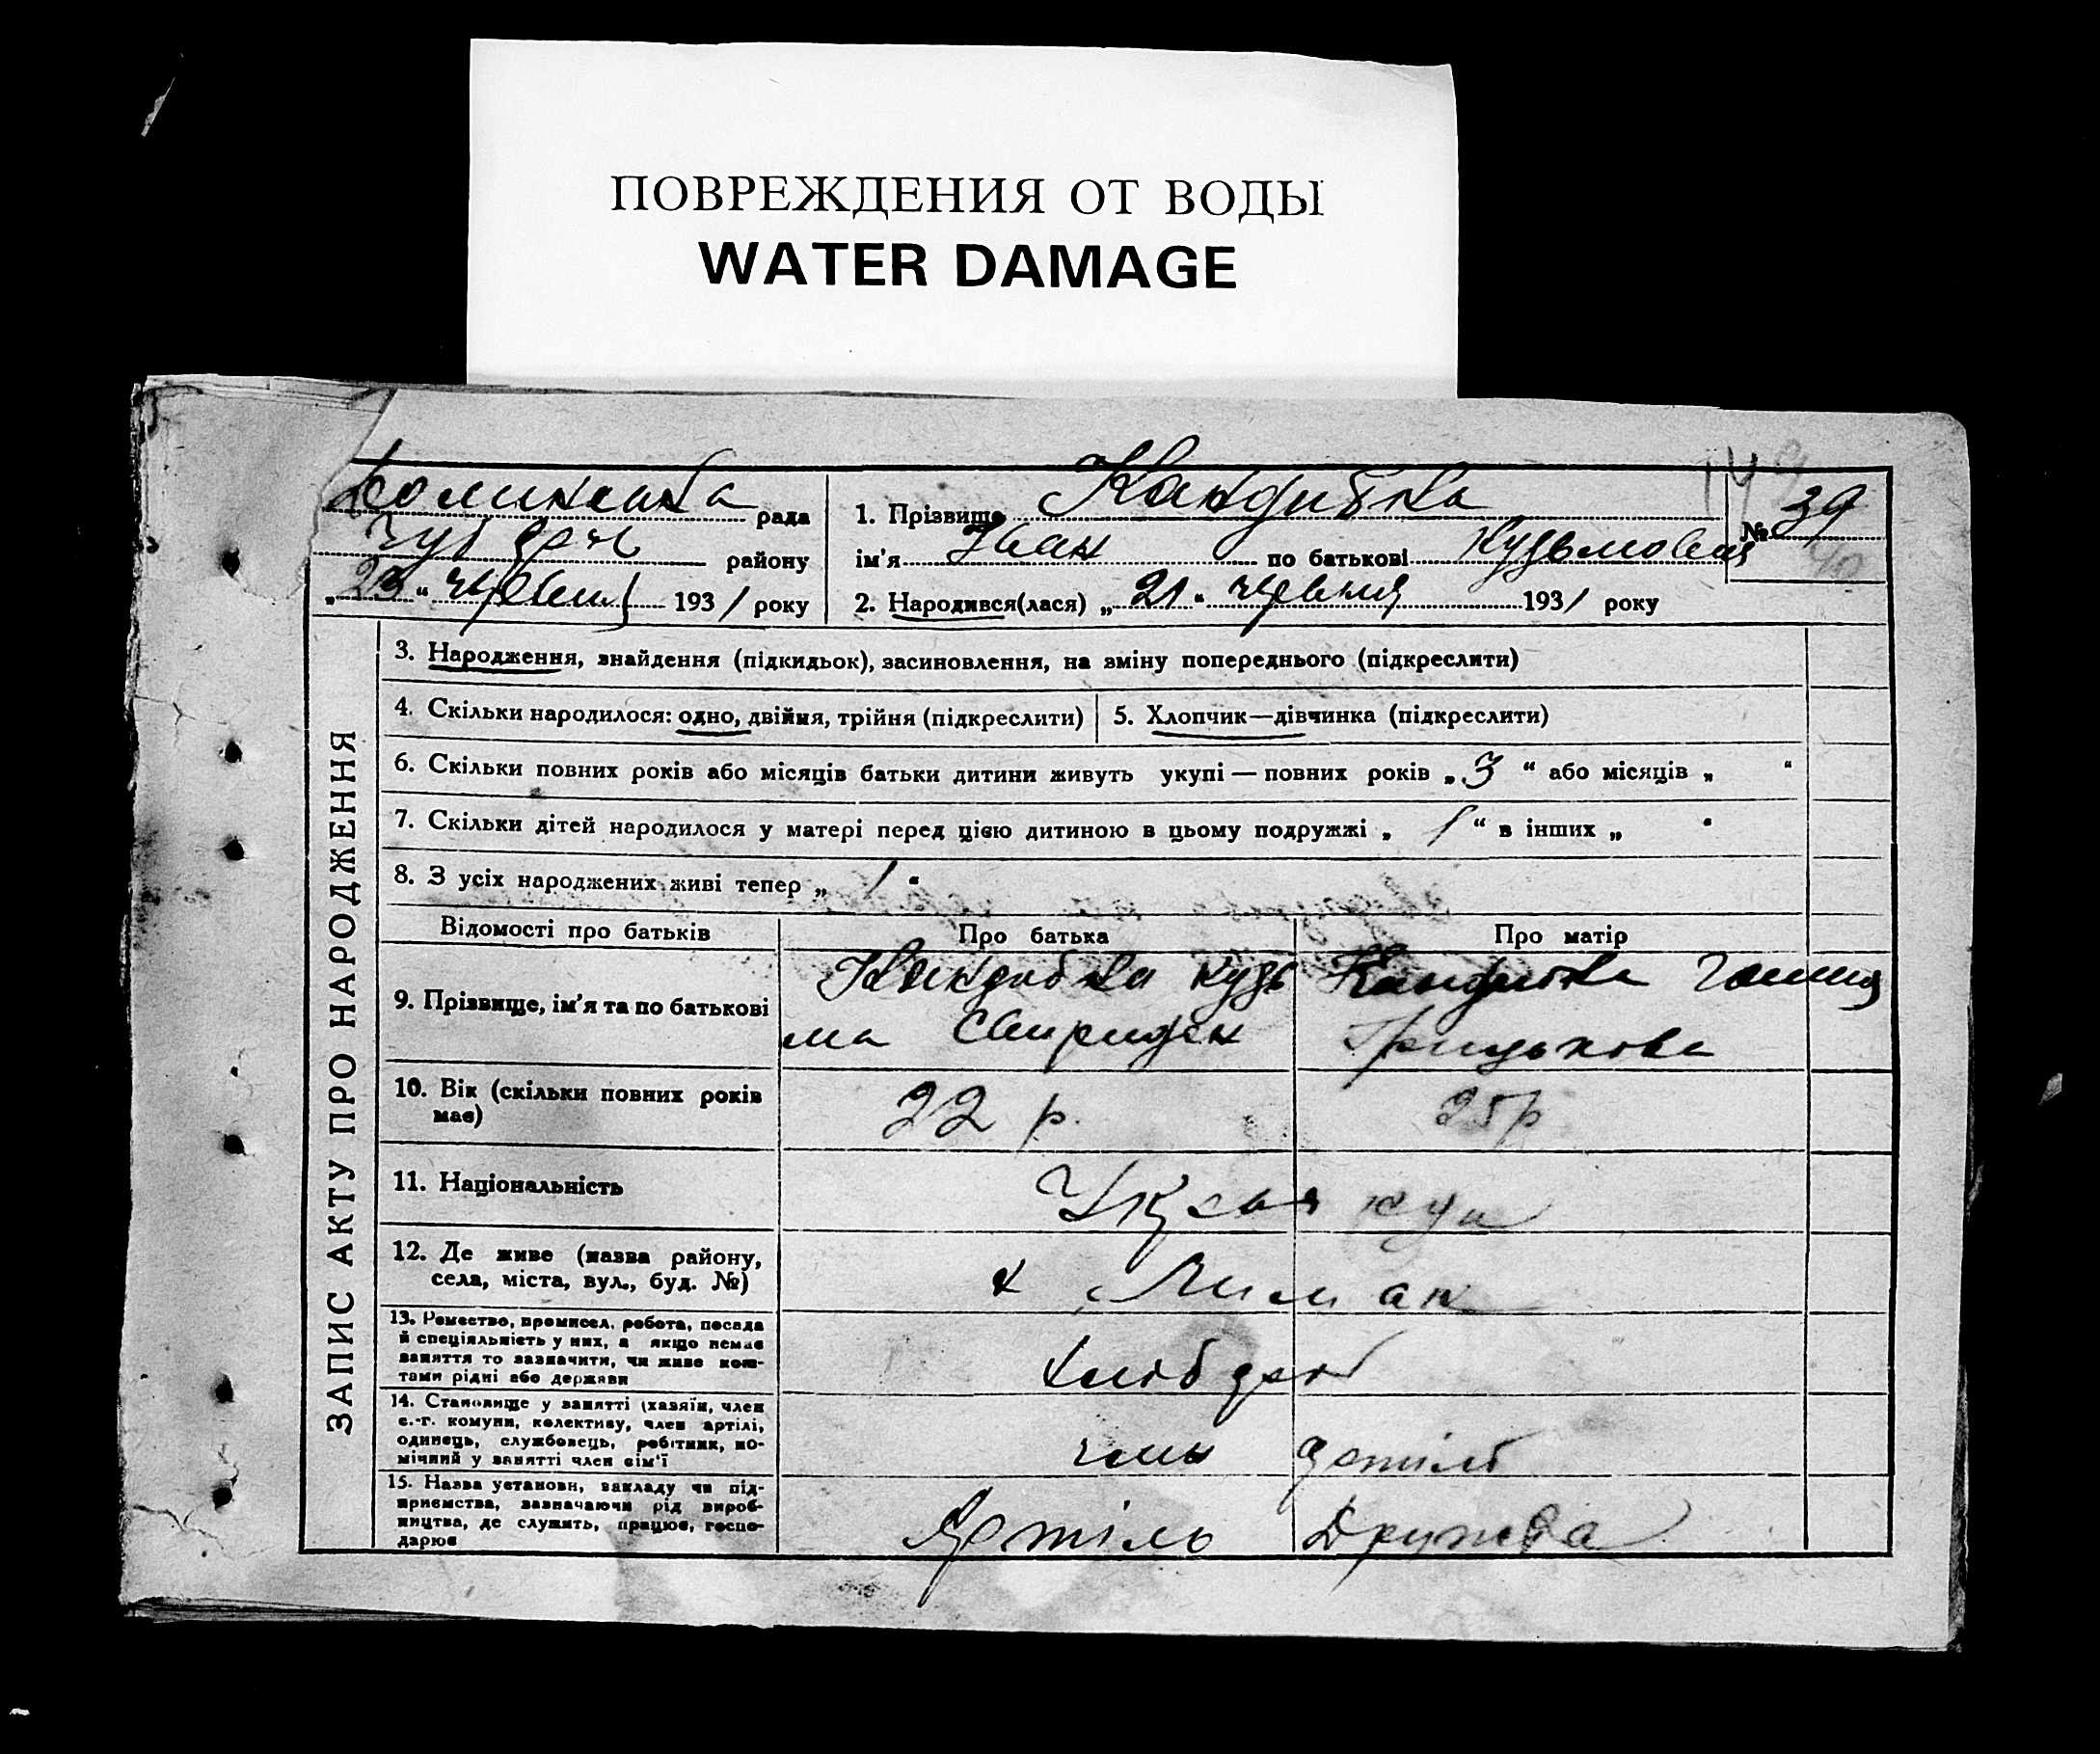 ПОВРЕЖДЕНИЯ ОТ ВОДЫ
WATER DAMAGE
рада
району
„23“ червня 1931 року
1. Прізвище Кандибка
ім'я Іван по батькові Кузьмович
2. Народився(лася) „21“ червня 1931 року
№ 39
ЗАПИС АКТУ ПРО НАРОДЖЕННЯ
3. Народження, знайдення (підкидьок), засиновлення, на зміну попереднього (підкреслити)
4. Скільки народилося: одно, двійня, трійня (підкреслити)
5. Хлопчик—дівчинка (підкреслити)
6. Скільки повних років або місяців батьки дитини живуть укупі — повних років „3“ або місяців „ “
7. Скільки дітей народилося у матері перед цією дитиною в цьому подружжі „1“ в інших „ “
8. З усіх народжених живі тепер „1“
Відомості про батьків
Про батька
Про матір
9. Прізвище, ім'я та по батькові
Кандибка Кузь
ма Свиридон
Кандибка
Грицькова
10. Вік (скільки повних років
має)
22 р.
25 р
11. Національність
12. Де живе (назва району,
села, міста, вул., буд. №)
х Лиман
13. Ремество, промисел, робота, посада
й спеціяльність у них, а якщо немає
заняття то зазначити, чи живе кош-
тами рідні або держави
хлібороб
14. Становище у занятті (хазяїн, член
с.-г. комуни, колективу, член артілі,
одинець, службовець, робітник, по-
мічний у занятті член сім'ї
член артілі
15. Назва установи, закладу чи під-
приємства, зазначаючи рід вироб-
ництва, де служить, працює, госпо-
дарює
Артіль Дружба